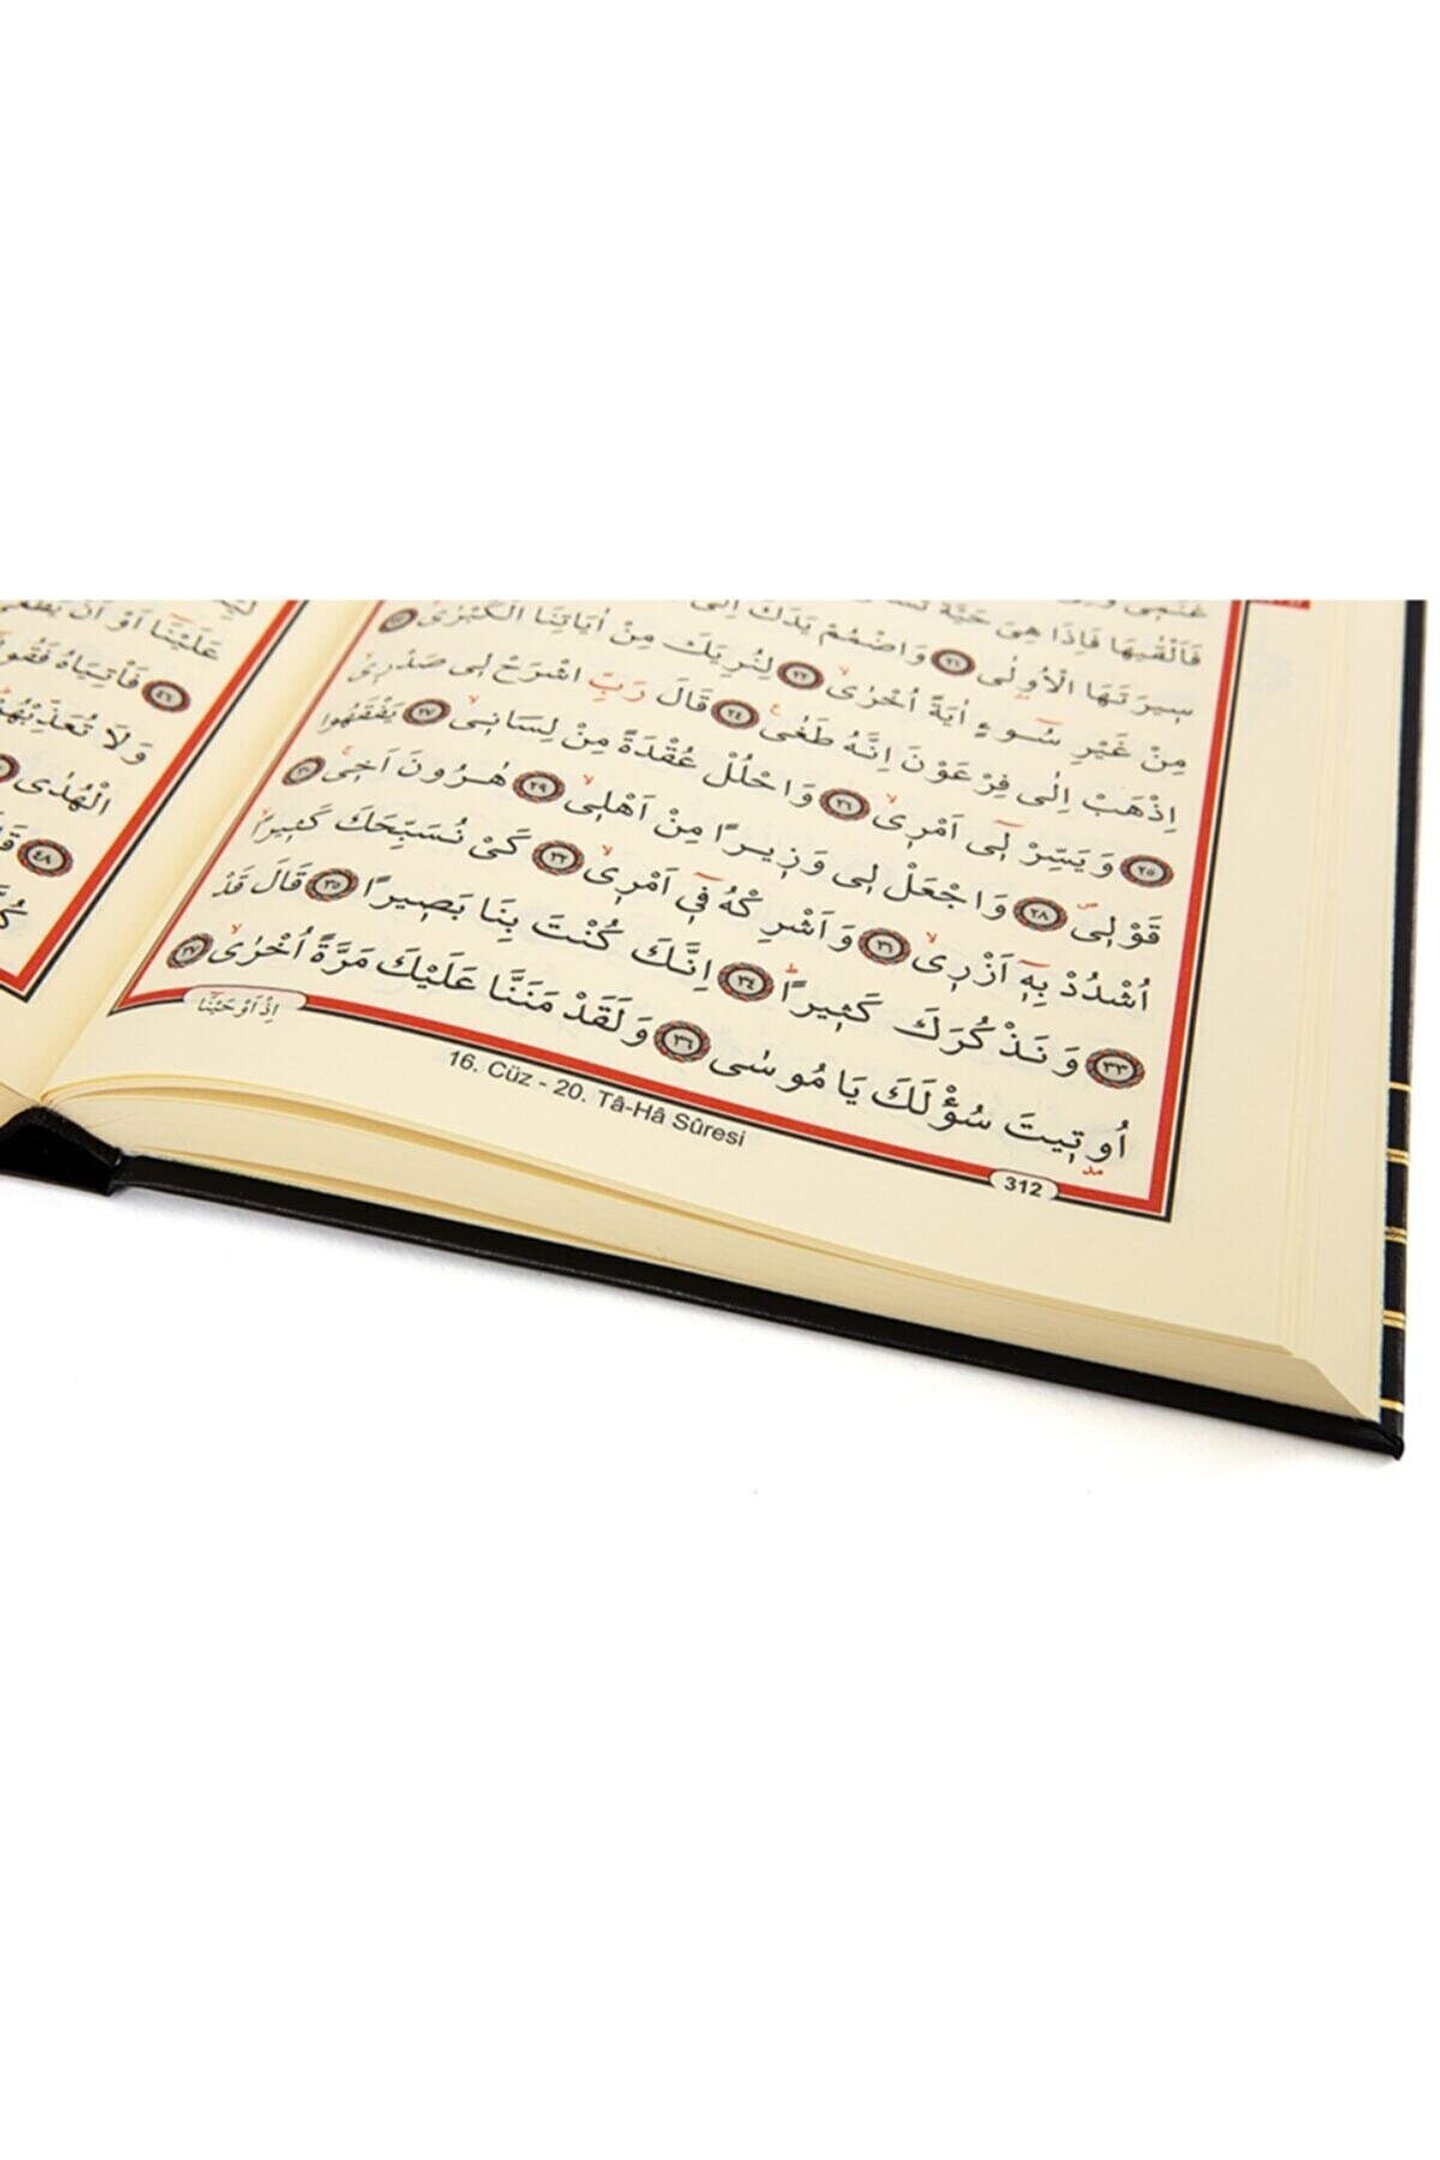 فَاَلْقٰيهَا فَاِذَا هِيَ حَيَّةٌ
سٖيرَتَهَا الْاُولٰى ﴿٢١﴾ وَاضْمُمْ يَدَكَ اِلٰى
مِنْ غَيْرِ سُٓوءٍ اٰيَةً اُخْرٰىۙ ﴿٢٢﴾ لِنُرِيَكَ مِنْ اٰيَاتِنَا الْكُبْرٰىۚ ﴿٢٣﴾
اِذْهَبْ اِلٰى فِرْعَوْنَ اِنَّهُ طَغٰى۟ ﴿٢٤﴾ قَالَ رَبِّ اشْرَحْ لٖي صَدْرٖيۙ
﴿٢٥﴾ وَيَسِّرْ لٖٓي اَمْرٖيۙ ﴿٢٦﴾ وَاحْلُلْ عُقْدَةً مِنْ لِسَانٖيۙ ﴿٢٧﴾ يَفْقَهُوا
قَوْلٖيࣕ ﴿٢٨﴾ وَاجْعَلْ لٖي وَزٖيرًا مِنْ اَهْلٖيۙ ﴿٢٩﴾ هٰرُونَ اَخٖيۚ ﴿٣٠﴾
اُشْدُدْ بِهٖٓ اَزْرٖيۙ ﴿٣١﴾ وَاَشْرِكْهُ فٖٓي اَمْرٖيۙ ﴿٣٢﴾ كَيْ نُسَبِّحَكَ كَثٖيرًاۙ
﴿٣٣﴾ وَنَذْكُرَكَ كَثٖيرًاۜ ﴿٣٤﴾ اِنَّكَ كُنْتَ بِنَا بَصٖيرًا ﴿٣٥﴾ قَالَ قَدْ
اُو۫تٖيتَ سُؤْلَكَ يَا مُوسٰى ﴿٣٦﴾ وَلَقَدْ مَنَنَّا عَلَيْكَ مَرَّةً اُخْرٰىۙ ﴿٣٧﴾
اِذْ اَوْحَيْنَٓا
312
16. Cüz - 20. Tâ-Hâ Sûresi
عَلَيْنَٓا اَوْ اَنْ يَطْغٰى
﴿٤٦﴾ فَأْتِيَاهُ فَقُولَٓا
وَلَا تُعَذِّبْهُمْ
الْهُدٰى
﴿٤٨﴾